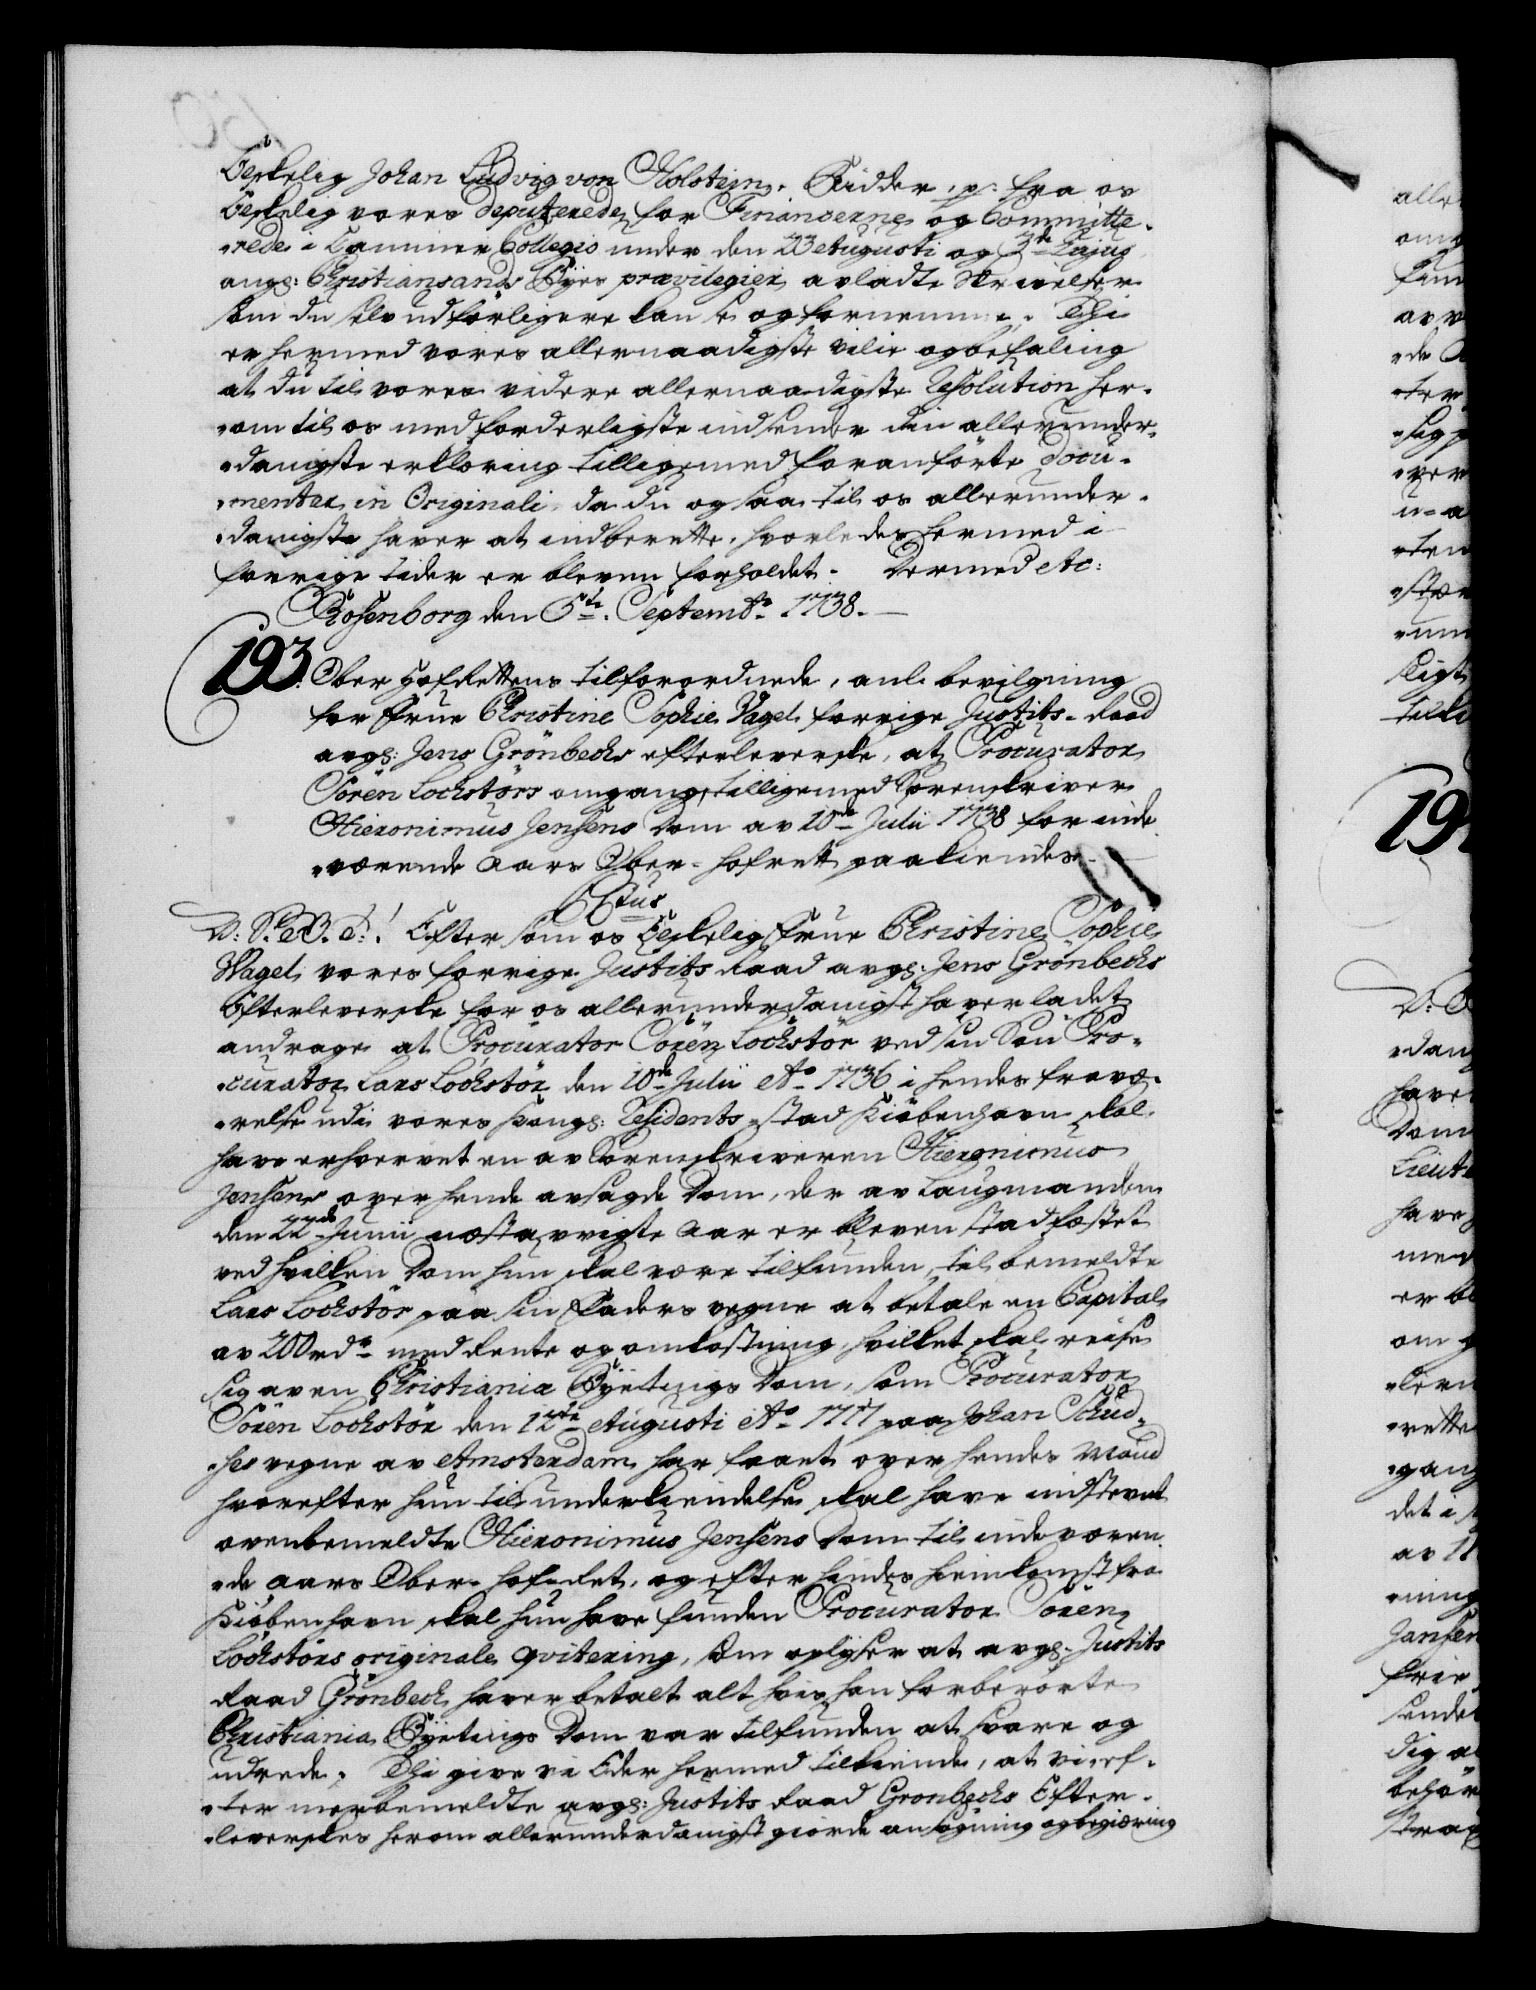 Elskelig Johan Ludvig von Holstein. Ridder, p: fra os
Elskelig vores deputerede for Financerne og Committe-
-rede i Cammer Collegio under den 23 Augusti og 3de hujus
angl: Christiansands Byes previlegier avladte skrivelser
som du selv udförligere kan se og fornemme. Thi
er hermed vores allernaadigste vilie og befaling
at du til vores videre allernaadigste Resolution her-
-om til os med forderligste indsender din allerunder-
-danigste erkloring tilligemed foranförte docu-
-menter in Originali, da du og saa til os allerunder-
-danigste haver at indberette, hvorledes hermed i
forrige tider er bleven forholdet. Dermed etc:
Rosenborg den 5te Septembr. 1738.
193. Ober Hofrettens tilforordnede, anl. bevilgning
for Frue Christine Sophie Vagel forrige Justits-Raad
avgl: Jens Grönbechs efterleverske, at Procurator
Sören Lochstörs omgang tilligemed Sorenskriver
Hieronimus Jensens dom av 10de Julii 1738 for inde-
-værende aars Ober-hofrett paakiendes.
C6tus
V: S: G: B: T:! Eftersom os Elskelig Frue Christine Sophie
Wagel vores forrige Justits Raad avgl: Jens Grönbechs
Efterleverske for os allerunderdanigst haver ladet
andrage at Procurator Sören Lochstör ved sin Sön Pro-
-curator Lars Lochstör den 10de Julii Ao 1736 i hendes fravæ-
-relse udi vores Kongl: Residents-stad Kiöbenhavn skal
have erhvervet en av Sorenskriveren Hieronimus
Jensen over hende avsagde dom, der av Laugmanden
den 22de Junii næstavvigte aar er bleven stadfæstet
ved hvilken dom hun skal være tilfunden, til bemeldte
Lars Lochstör paa sin Faders vegne at betale en Capital
av 200 rdr med Rente og omkostning hvilket skal reise
sig av en Christiania Byetings dom, som Procurator
Sören Lochstör den 12te Augusti Ao 1717 paa Johan Schud-
-hes vegne av Amsterdam har faaet over hendes Mand
hvorefter hun til underkiendelse skal have indstevnt
ovenbemeldte Hieronimus Jensens dom til indeværen-
-de aars Ober-hof-Ret, og efter hendes hiemkomst fra
Kiöbenhavn skal hun have funden Procurator Sören
Lochstörs originale qvitering, som oplyser at avgl: Justits
Raad Grönbech haver betalt alt hvis han forberörte
Christiania Byetings dom var tilfunden at svare og
udrede; Thi give vi Eder hermed tilkiende, at vi ef-
-ter merbemeldte avgl: Justits Raad Gronbechs Efter-
-leverskes herom allerunderdanigst giorde ansögning og begiæring